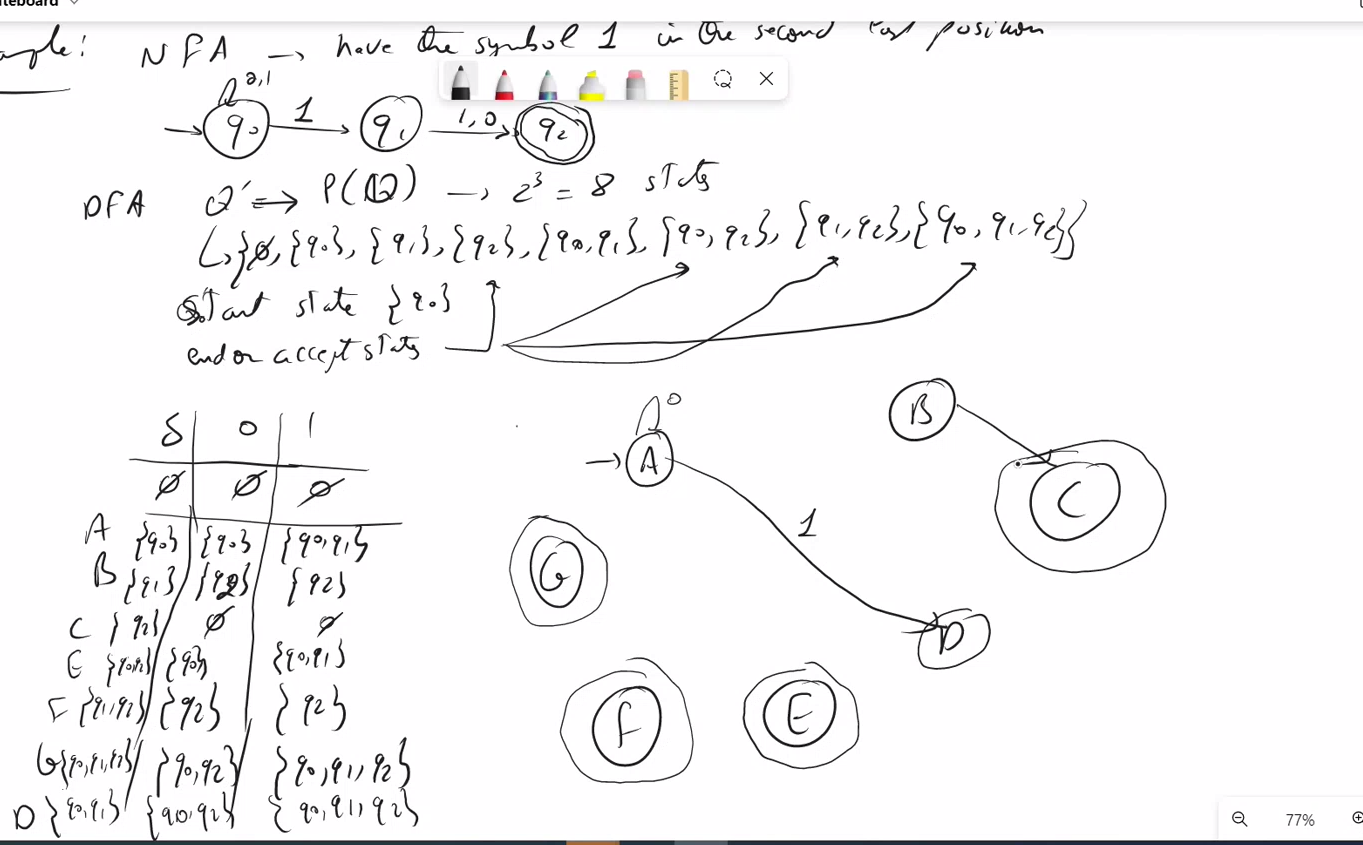 teboard
ample: NFA → have the symbol 1 in the second last position
0,1
→ q0 1 → q1 1,0 → q2
DFA Q' ⇒ P(Q) → 2^3 = 8 states
↳ {∅, {q0}, {q1}, {q2}, {q0,q1}, {q0,q2}, {q1,q2}, {q0,q1,q2}}
Start state {q0}
end or accept states
δ 0 1
∅ ∅ ∅
A {q0} {q0} {q0,q1}
B {q1} {q2} {q2}
C {q2} ∅ ∅
E {q0,q2} {q0} {q0,q1}
F {q1,q2} {q2} {q2}
G {q0,q1,q2} {q0,q2} {q0,q1,q2}
D {q0,q1} {q0,q2} {q0,q1,q2}
0
→ A
B
1
C
G
D
F
E
77%